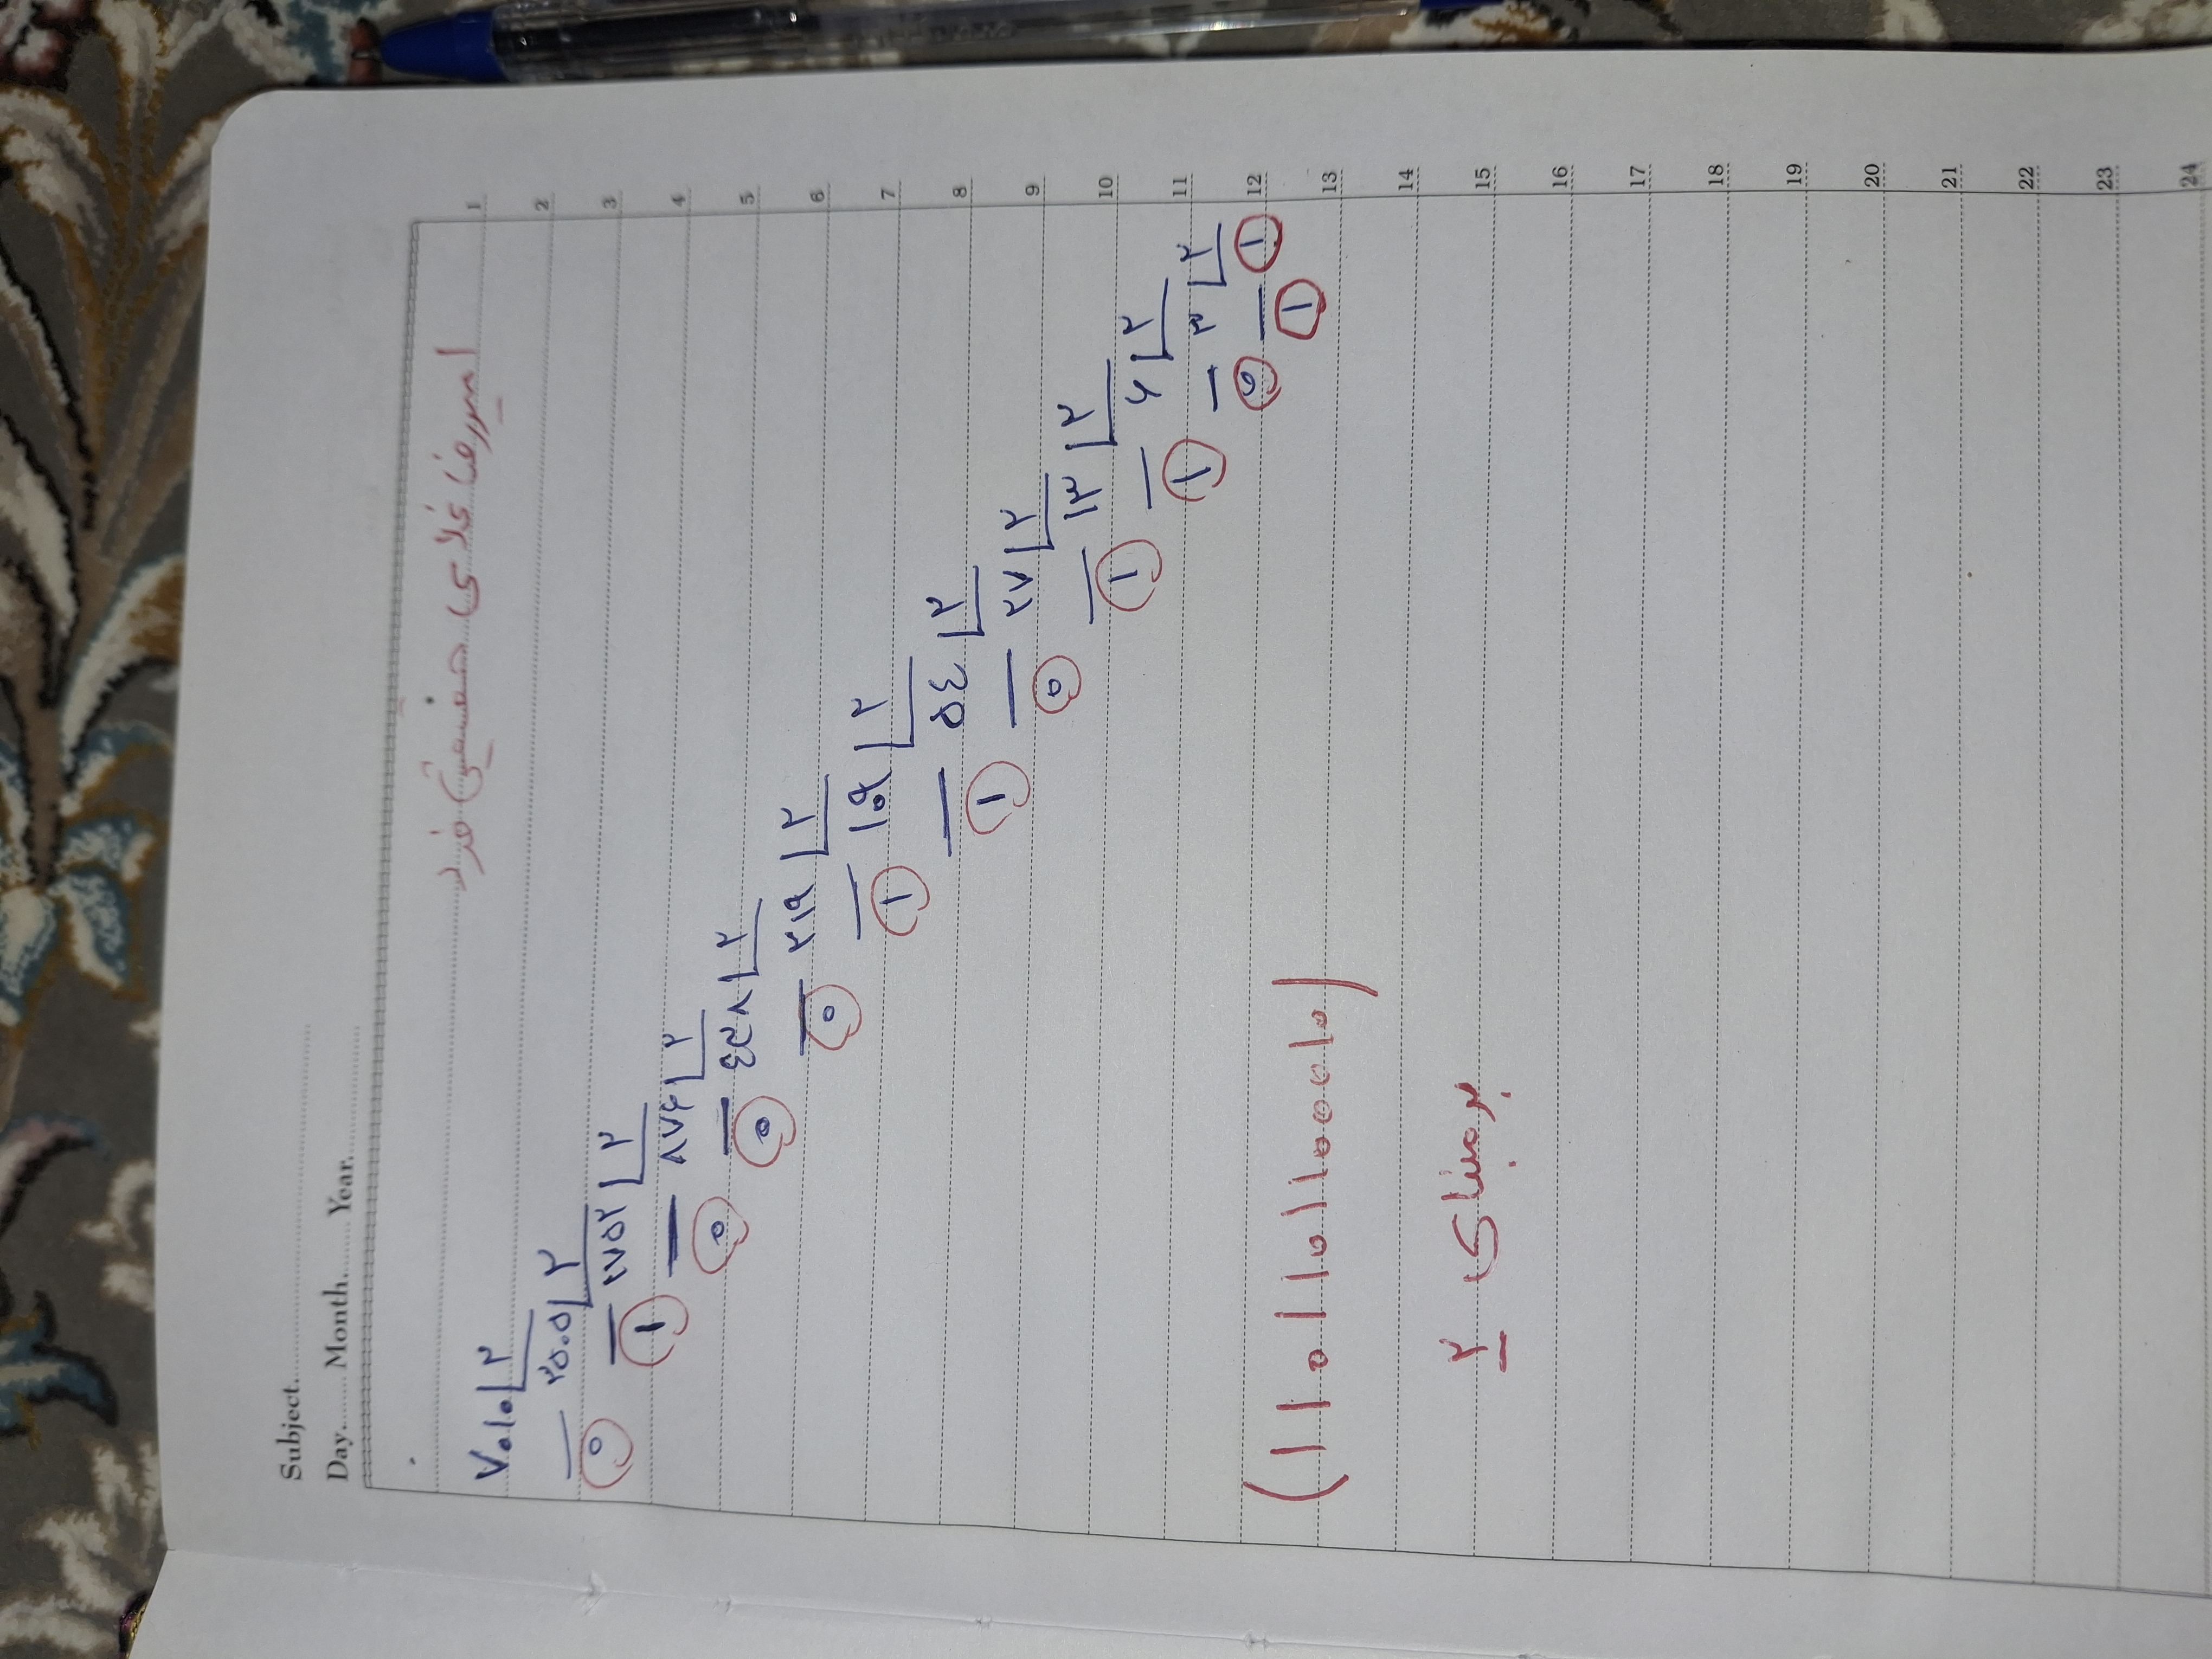 Subject.
Day. Month. Year.
امیررضا غلامی حقیقی فرد
۷۰۱۰ ۲
۳۵۰۵ ۲
۰ ۱۷۵۲ ۲
۱ ۸۷۶ ۲
۰ ۴۳۸ ۲
۰ ۲۱۹ ۲
۰ ۱۰۹ ۲
۱ ۵۴ ۲
۱ ۲۷ ۲
۰ ۱۳ ۲
۱ ۶ ۲
۱ ۳ ۲
۰ ۱
۱
(۱۱۰۱۱۰۱۱۰۰۰۱۰)
بر مبنای ۲
1
2
3
4
5
6
7
8
9
10
11
12
13
14
15
16
17
18
19
20
21
22
23
24